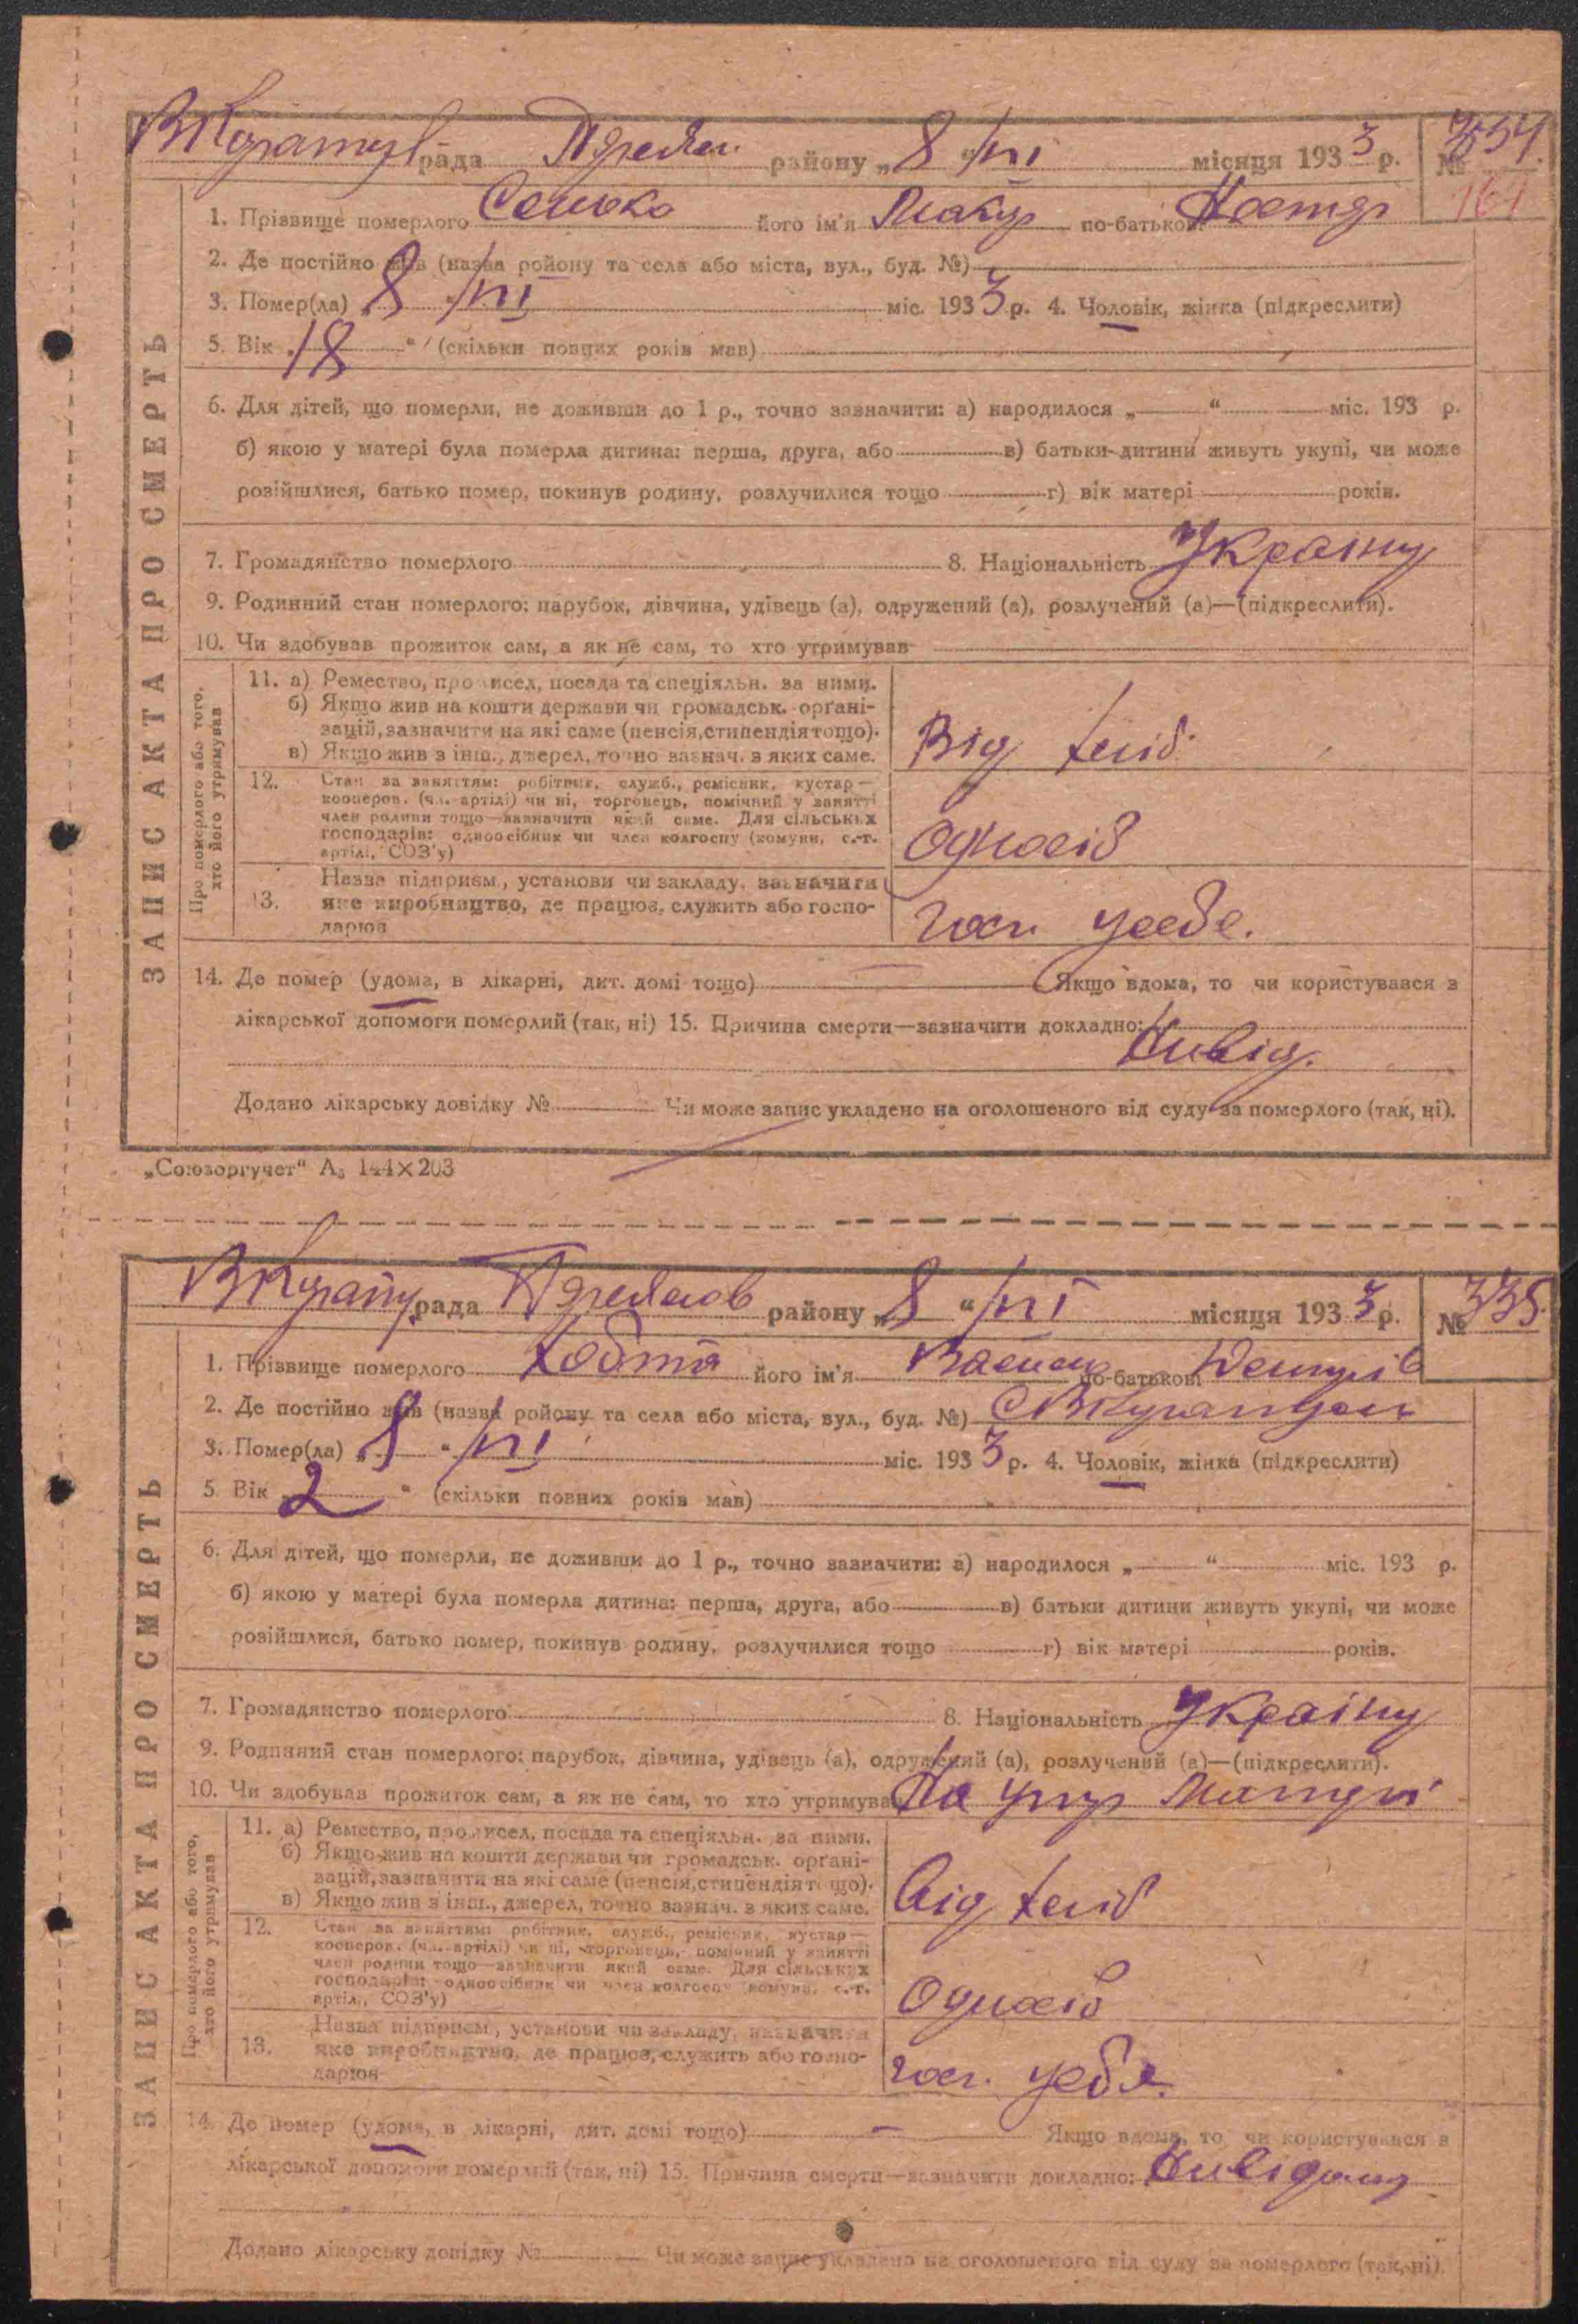 ЗАПИС АКТА ПРО СМЕРТЬ
рада район у „ 8 “ /VI місяця 1933 р. № 334.
161
1. Прізвище померлого його ім'я по-батькові
2. Де постійно жив (назва району та села або міста, вул., буд. №)
3. Помер(ла) „ 8 “ /VI міс. 1933 р. 4. Чоловік, жінка (підкреслити)
5. Вік „ 18 “ (скільки повних років мав)
6. Для дітей, що померли, не доживши до 1 р., точно зазначити: а) народилося „ “ міс. 193 р.
б) якою у матері була померла дитина: перша, друга, або в) батьки дитини живуть укупі, чи може
розійшлися, батько помер, покинув родину, розлучилися тощо г) вік матері років.
7. Громадянство померлого 8. Національність Україну
9. Родинний стан померлого: парубок, дівчина, удівець (а), одружений (а), розлучений (а)—(підкреслити).
10. Чи здобував прожиток сам, а як не сам, то хто утримував
Про померлого або того, хто його утримував
11. а) Ремество, промисел, посада та спеціяльн. за ними.
б) Якщо жив на кошти держави чи громадськ. органі-
зацій, зазначити на які саме (пенсія, стипендія тощо).
в) Якщо жив з інш., джерел, точно зазнач. з яких саме.
Від хліб
12. Стан за заняттям: робітник, служб., ремісник, кустар—
кооперов. (чл. артілі) чи ні, торговець, помічний у занятті
член родини тощо—зазначити який саме. Для сільських
господарів: одноосібник чи член колгоспу (комуни, с.-г.
артілі, СОЗ'у)
Одноосіб
13. Назва підприєм., установи чи закладу, зазначити
яке виробництво, де працює, служить або госпо-
дарює
госп. у себе.
14. Де помер (удома, в лікарні, дит. домі тощо) Якщо вдома, то чи користувався з
лікарської допомоги померлий (так, ні) 15. Причина смерти—зазначити докладно:
Невід.
Додано лікарську довідку № Чи може запис укладено на оголошеного від суду за померлого (так, ні).
„Союзоргучет“ А₅ 144×203
ЗАПИС АКТА ПРО СМЕРТЬ
рада району „ 8 “ /VI місяця 1933 р. № 335.
1. Прізвище померлого Ковта його ім'я по-батькові
2. Де постійно жив (назва району та села або міста, вул., буд. №)
3. Помер(ла) „ 8 “ /VI міс. 1933 р. 4. Чоловік, жінка (підкреслити)
5. Вік 2 “ (скільки повних років мав)
6. Для дітей, що померли, не доживши до 1 р., точно зазначити: а) народилося „ “ міс. 193 р.
б) якою у матері була померла дитина: перша, друга, або в) батьки дитини живуть укупі, чи може
розійшлися, батько помер, покинув родину, розлучилися тощо г) вік матері років.
7. Громадянство померлого 8. Національність Україну
9. Родинний стан померлого: парубок, дівчина, удівець (а), одружений (а), розлучений (а)—(підкреслити).
10. Чи здобував прожиток сам, а як не сам, то хто утримував На утр Матері
Про померлого або того, хто його утримував
11. а) Ремество, промисел, посада та спеціяльн. за ними.
б) Якщо жив на кошти держави чи громадськ. органі-
зацій, зазначити на які саме (пенсія, стипендія тощо).
в) Якщо жив з інш., джерел, точно зазнач. з яких саме.
Від хліб
12. Стан за заняттям: робітник, служб., ремісник, кустар—
кооперов. (чл. артілі) чи ні, торговець, помічний у занятті
член родини тощо—зазначити який саме. Для сільських
господарів: одноосібник чи член колгоспу (комуни, с.-г.
артілі, СОЗ'у)
Одноосіб
13. Назва підприєм., установи чи закладу, зазначити
яке виробництво, де працює, служить або госпо-
дарює
госп. у себя.
14. Де помер (удома, в лікарні, дит. домі тощо) Якщо вдома, то чи користувався з
лікарської допомоги померлий (так, ні) 15. Причина смерти—зазначити докладно: Невідому
Додано лікарську довідку № Чи може запис укладено на оголошеного від суду за померлого (так, ні).